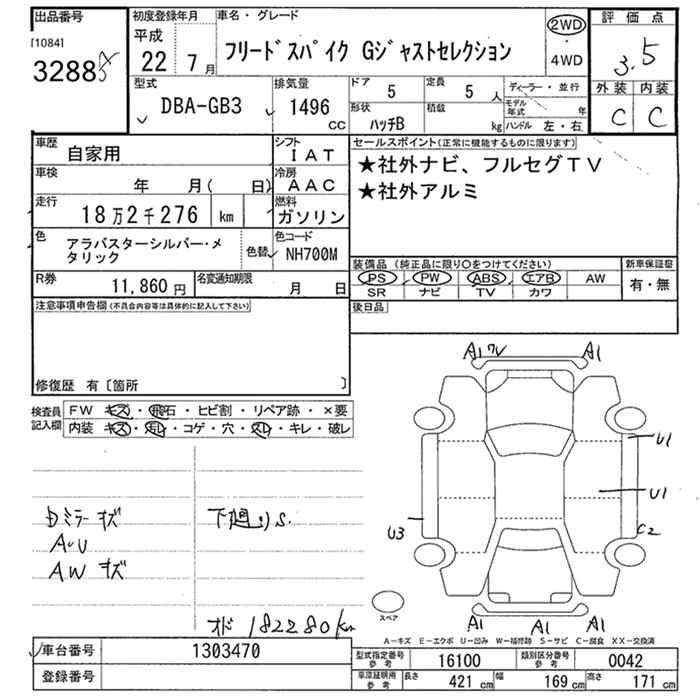 出品番号
[1084]
3288
初度登録年月
平成
22 7月
車名・グレード
フリードスパイク Gジャストセレクション
2WD
・
4WD
評価点
3.5
外装 内装
C C
型式
DBA-GB3
排気量
1496
CC
ドア
5
定員
5人
形状
ハッチB
積載
kg
ディーラー・並行
モデル年式 年
ハンドル 左・右
車歴
自家用
シフト
IAT
車検
年 月( 日)
冷房
AAC
走行
18万2千276 km
燃料
ガソリン
色
アラバスターシルバー・メタリック
色替
色コード
NH700M
R券
11,860円
名変通知期限
月 日
セールスポイント(正常に機能するものに限ります)
★社外ナビ、フルセグTV
★社外アルミ
装備品(純正品に限り○をつけてください)
PS PW ABS エアB AW
SR ナビ TV カワ
新車保証書
有・無
後日品
注意事項申告欄(不具合内容等は具体的に記入して下さい)
修復歴 有〔箇所 〕
検査員記入欄
FW キズ・飛石・ヒビ割・リペア跡・×要
内装 キズ・モレ・コゲ・穴・スレ・キレ・破レ
ミラー キズ
AUU
AW キズ
下廻りS.
オド 182280km
A1 A1
U1
U1
U3
C2
スペア
A1 A1 A1
A−キズ E−エクボ U−凹み W−補修跡 S−サビ C−腐食 XX−交換済
車台番号
1303470
登録番号
型式指定番号
参考
16100
類別区分番号
参考
0042
車庫証明用
参考
長さ
421cm
幅
169cm
高さ
171cm